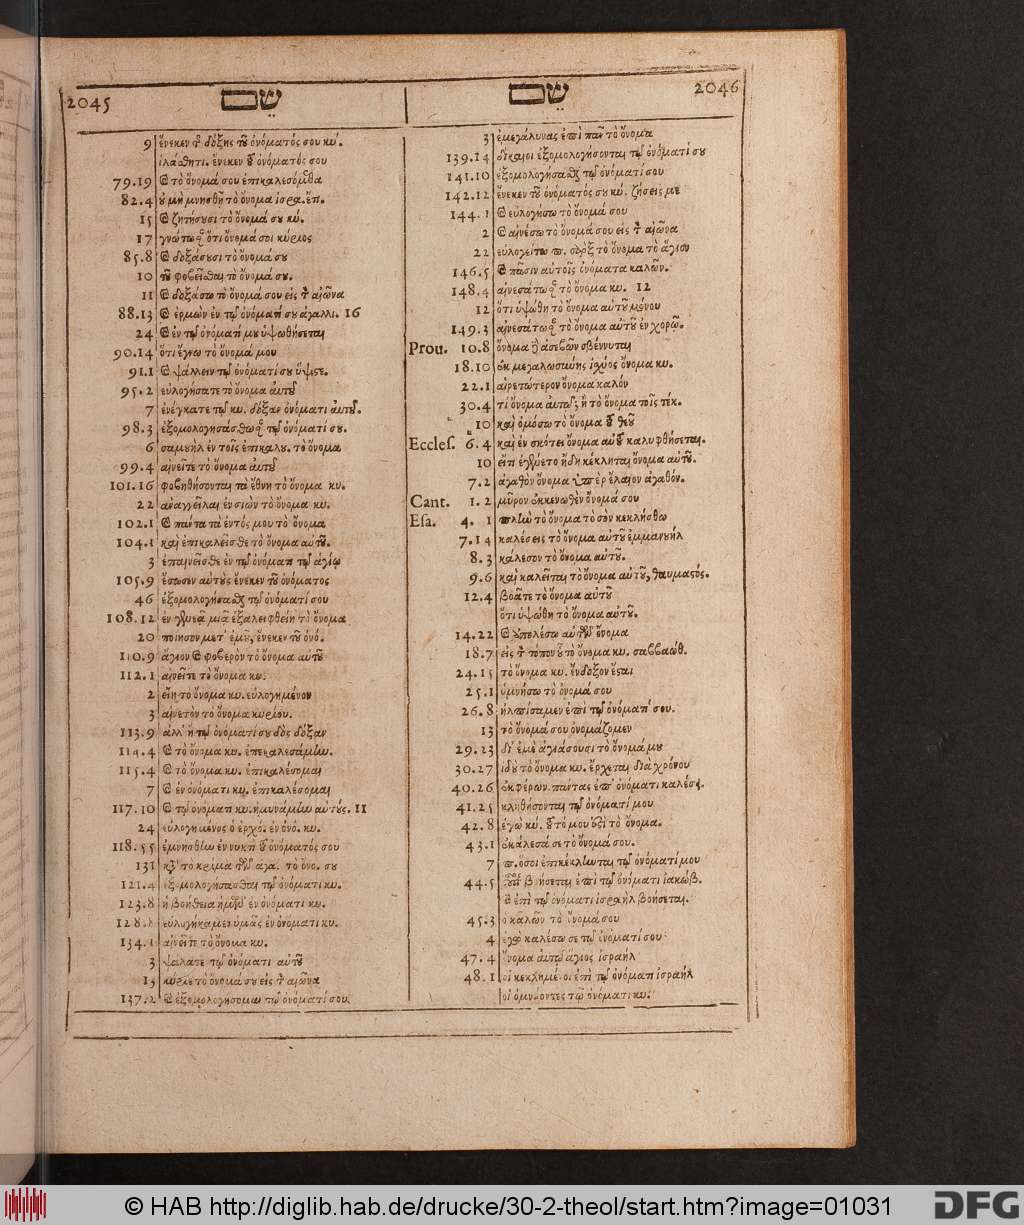 2045 שֵם
9 ἕνεκεν τ̃ δόξης τ͂ȣ ὀνόματός σου κύ.
ἱλάσθητι. ἕνεκεν ȣ͂ ὀνόματός σου
79.19 ϗ τὸ ὄνομά σου ἐπικαλεσόμεθα
82.4 ȣ μὴ μνησθῇ τὸ ὄνομα ἰσρα. ἔπ.
15 ϗ ζητήσȣσι τὸ ὄνομά σȣ κύ.
17 γνώτωσαν ὅτι ὄνομά σοι κύριος
85.8 ϗ δοξάσȣσι τὸ ὄνομά σȣ
10 τȣ͂ φοβεῖσθαι τὸ ὄνομά σȣ.
11 ϗ δοξάσω τὸ ὄνομά σου εἰς τ̀ αἰῶνα
88.13 ϗ ἑρμὼν ἐν τῷ ὀνόματί σȣ ἀγαλλι. 16
24 ϗ ἐν τῷ ὀνόματί μȣ ὑψωθήσεται
90.14 ὅτι ἔγνω τὸ ὄνομά μου
91.1 ϗ ψάλλειν τῷ ὀνόματί σȣ ὕψιστε.
95.2 εὐλογήσατε τὸ ὄνομα αὐτȣ͂
7 ἐνέγκατε τῷ κυ. δόξαν ὀνόματι αὐτȣ͂.
98.3 ἐξομολογησάσθωσαν τῷ ὀνόματί σȣ.
6 σαμουὴλ ἐν τοῖς ἐπικαλȣ. τὸ ὄνομα
99.4 αἰνεῖτε τὸ ὄνομα αὐτȣ͂
101.16 φοβηθήσονται τὰ ἔθνη τὸ ὄνομα κυ.
22 ἀναγγεῖλαι ἐν σιὼν τὸ ὄνομα κυ.
102.1 ϗ πάντα τὰ ἐντός μου τὸ ὄνομα
104.1 καὶ ἐπικαλεῖσθε τὸ ὄνομα αὐτȣ͂.
3 ἐπαινεῖσθε ἐν τῷ ὀνόματι τῷ ἁγίῳ
105.9 ἔσωσεν αὐτȣ̀ς ἕνεκεν τȣ͂ ὀνόματος
46 ἐξομολογήσασθαι τῷ ὀνόματί σου
108.12 ἐν γενεᾷ μιᾷ ἐξαλειφθείη τὸ ὄνομα
20 ποίησον μετ' ἐμȣ͂, ἕνεκεν τȣ͂ ὀνό.
110.9 ἅγιον ϗ φοβερὸν τὸ ὄνομα αὐτȣ͂
112.1 αἰνεῖτε τὸ ὄνομα κυ.
2 εἴη τὸ ὄνομα κυ. εὐλογημένον
3 αἰνετὸν τὸ ὄνομα κυρίου.
113.9 ἀλλ' ἢ τῷ ὀνόματί σȣ δὸς δόξαν
114.4 ϗ τὸ ὄνομα κυ. ἐπεκαλεσάμην.
115.4 ϗ τὸ ὄνομα κυ. ἐπικαλέσομαι
7 ϗ ἐν ὀνόματι κυ. ἐπικαλέσομαι
117.10 ϗ τῷ ὀνόματι κυ. ἠμυνάμην αὐτȣ́ς. 11
24 εὐλογημένος ὁ ἐρχο. ἐν ὀνό. κυ.
118.55 ἐμνήσθην ἐν νυκτὶ ȣ͂ ὀνόματός σου
131 κτ' τὸ κρίμα τῶν ἀγα. τὸ ὄνο. σȣ
121.4 ἐξομολογήσασθαι τῷ ὀνόματι κυ.
123.8 ἡ βοήθεια ἡμῶν ἐν ὀνόματι κυ.
128.8 εὐλογήκαμεν ὑμᾶς ἐν ὀνόματι κυ.
134.1 αἰνεῖτε τὸ ὄνομα κυ.
3 ψάλατε τῷ ὀνόματι αὐτȣ͂
13 κύριε τὸ ὄνομά σȣ εἰς τ̀ αἰῶνα
137.2 ϗ ἐξομολογήσομαι τῷ ὀνόματί σου.
שֵם 2046
3 ἐμεγάλυνας ἐπὶ πᾶν τὸ ὄνομα
139.14 δίκαιοι ἐξομολογήσονται τῷ ὀνόματί σȣ
141.10 ἐξομολογήσασθαι τῷ ὀνόματί σου
142.12 ἕνεκεν τȣ͂ ὀνόματός σȣ κύ. ζήσεις με
144.1 ϗ εὐλογήσω τὸ ὄνομά σου
2 ϗ αἰνέσω τὸ ὄνομά σου εἰς τ̀ αἰῶνα
22 εὐλογείτω π. σὰρξ τὸ ὄνομα τὸ ἅγιον
146.5 ϗ πᾶσιν αὐτοῖς ὀνόματα καλῶν.
148.4 αἰνεσάτωσαν τὸ ὄνομα κυ. 12
12 ὅτι ὑψώθη τὸ ὄνομα αὐτȣ͂ μόνου
149.3 αἰνεσάτωσαν τὸ ὄνομα αὐτȣ͂ ἐν χορῷ.
Prou. 10.8 ὄνομα δὲ ἀσεβῶν σβέννυται
18.10 ἐκ μεγαλωσύνης ἰσχύος ὄνομα κυ.
22.1 αἱρετώτερον ὄνομα καλὸν
30.4 τί ὄνομα αὐτῷ; ἢ τὸ ὄνομα τοῖς τέκ.
10 καὶ ὀμόσω τὸ ὄνομα ȣ͂ θεȣ͂
Eccles. 6.4 καὶ ἐν σκότει ὄνομα αὐȣ͂ καλυφθήσεται.
10 εἴ τι ἐγένετο ἤδη κέκληται ὄνομα αὐτȣ͂.
7.2 ἀγαθὸν ὄνομα ὑπὲρ ἔλαιον ἀγαθόν.
Cant. 1.2 μῦρον ἐκκενωθὲν ὄνομά σου
Esa. 4.1 πλὴν τὸ ὄνομα τὸ σὸν κεκλήσθω
7.14 καλέσεις τὸ ὄνομα αὐτȣ͂ ἐμμανουήλ
8.3 κάλεσον τὸ ὄνομα αὐτȣ͂.
9.6 καὶ καλεῖται τὸ ὄνομα αὐτȣ͂, θαυμαστός.
12.4 βοᾶτε τὸ ὄνομα αὐτȣ͂
ὅτι ὑψώθη τὸ ὄνομα αὐτȣ͂.
14.22 ϗ ἀπολέσω αὐτῶν ὄνομα
18.7 εἰς τ̀ τόπον ȣ͂ τὸ ὄνομα κυ. σαββαώθ.
24.15 τὸ ὄνομα κυ. ἔνδοξον ἔσται
25.1 ὑμνήσω τὸ ὄνομά σου
26.8 ἠλπίσαμεν ἐπὶ τῷ ὀνόματί σου.
13 τὸ ὄνομά σου ὀνομάζομεν
29.23 δι' ἐμὲ ἁγιάσουσι τὸ ὄνομά μȣ
30.27 ἰδȣ̀ τὸ ὄνομα κυ. ἔρχεται διὰ χρόνου
40.26 ἐκφέρων. πάντας ἐπ' ὀνόματι καλέσει.
41.25 κληθήσονται τῷ ὀνόματί μου
42.8 ἐγὼ κύ. ȣ͂τό μου ἐστὶ τὸ ὄνομα.
43.1 ἐκάλεσά σε τὸ ὄνομά σου.
7 π. ὅσοι ἐπικέκληνται τῷ ὀνόματί μου
44.5 βοήσεται ἐπὶ τῷ ὀνόματι ἰακώβ.
ϗ ἐπὶ τῷ ὀνόματι ἰσραὴλ βοήσεται.
45.3 ὁ καλῶν τὸ ὄνομά σου
4 ἐγὼ καλέσω σε τῷ ὀνόματί σου
47.4 ὄνομα αὐτῷ ἅγιος ἰσραήλ
48.1 οἱ κεκλημένοι ἐπὶ τῷ ὀνόματι ἰσραήλ
οἱ ὀμνύοντες τῷ ὀνόματι κυ.
© HAB http://diglib.hab.de/drucke/30-2-theol/start.htm?image=01031
DFG